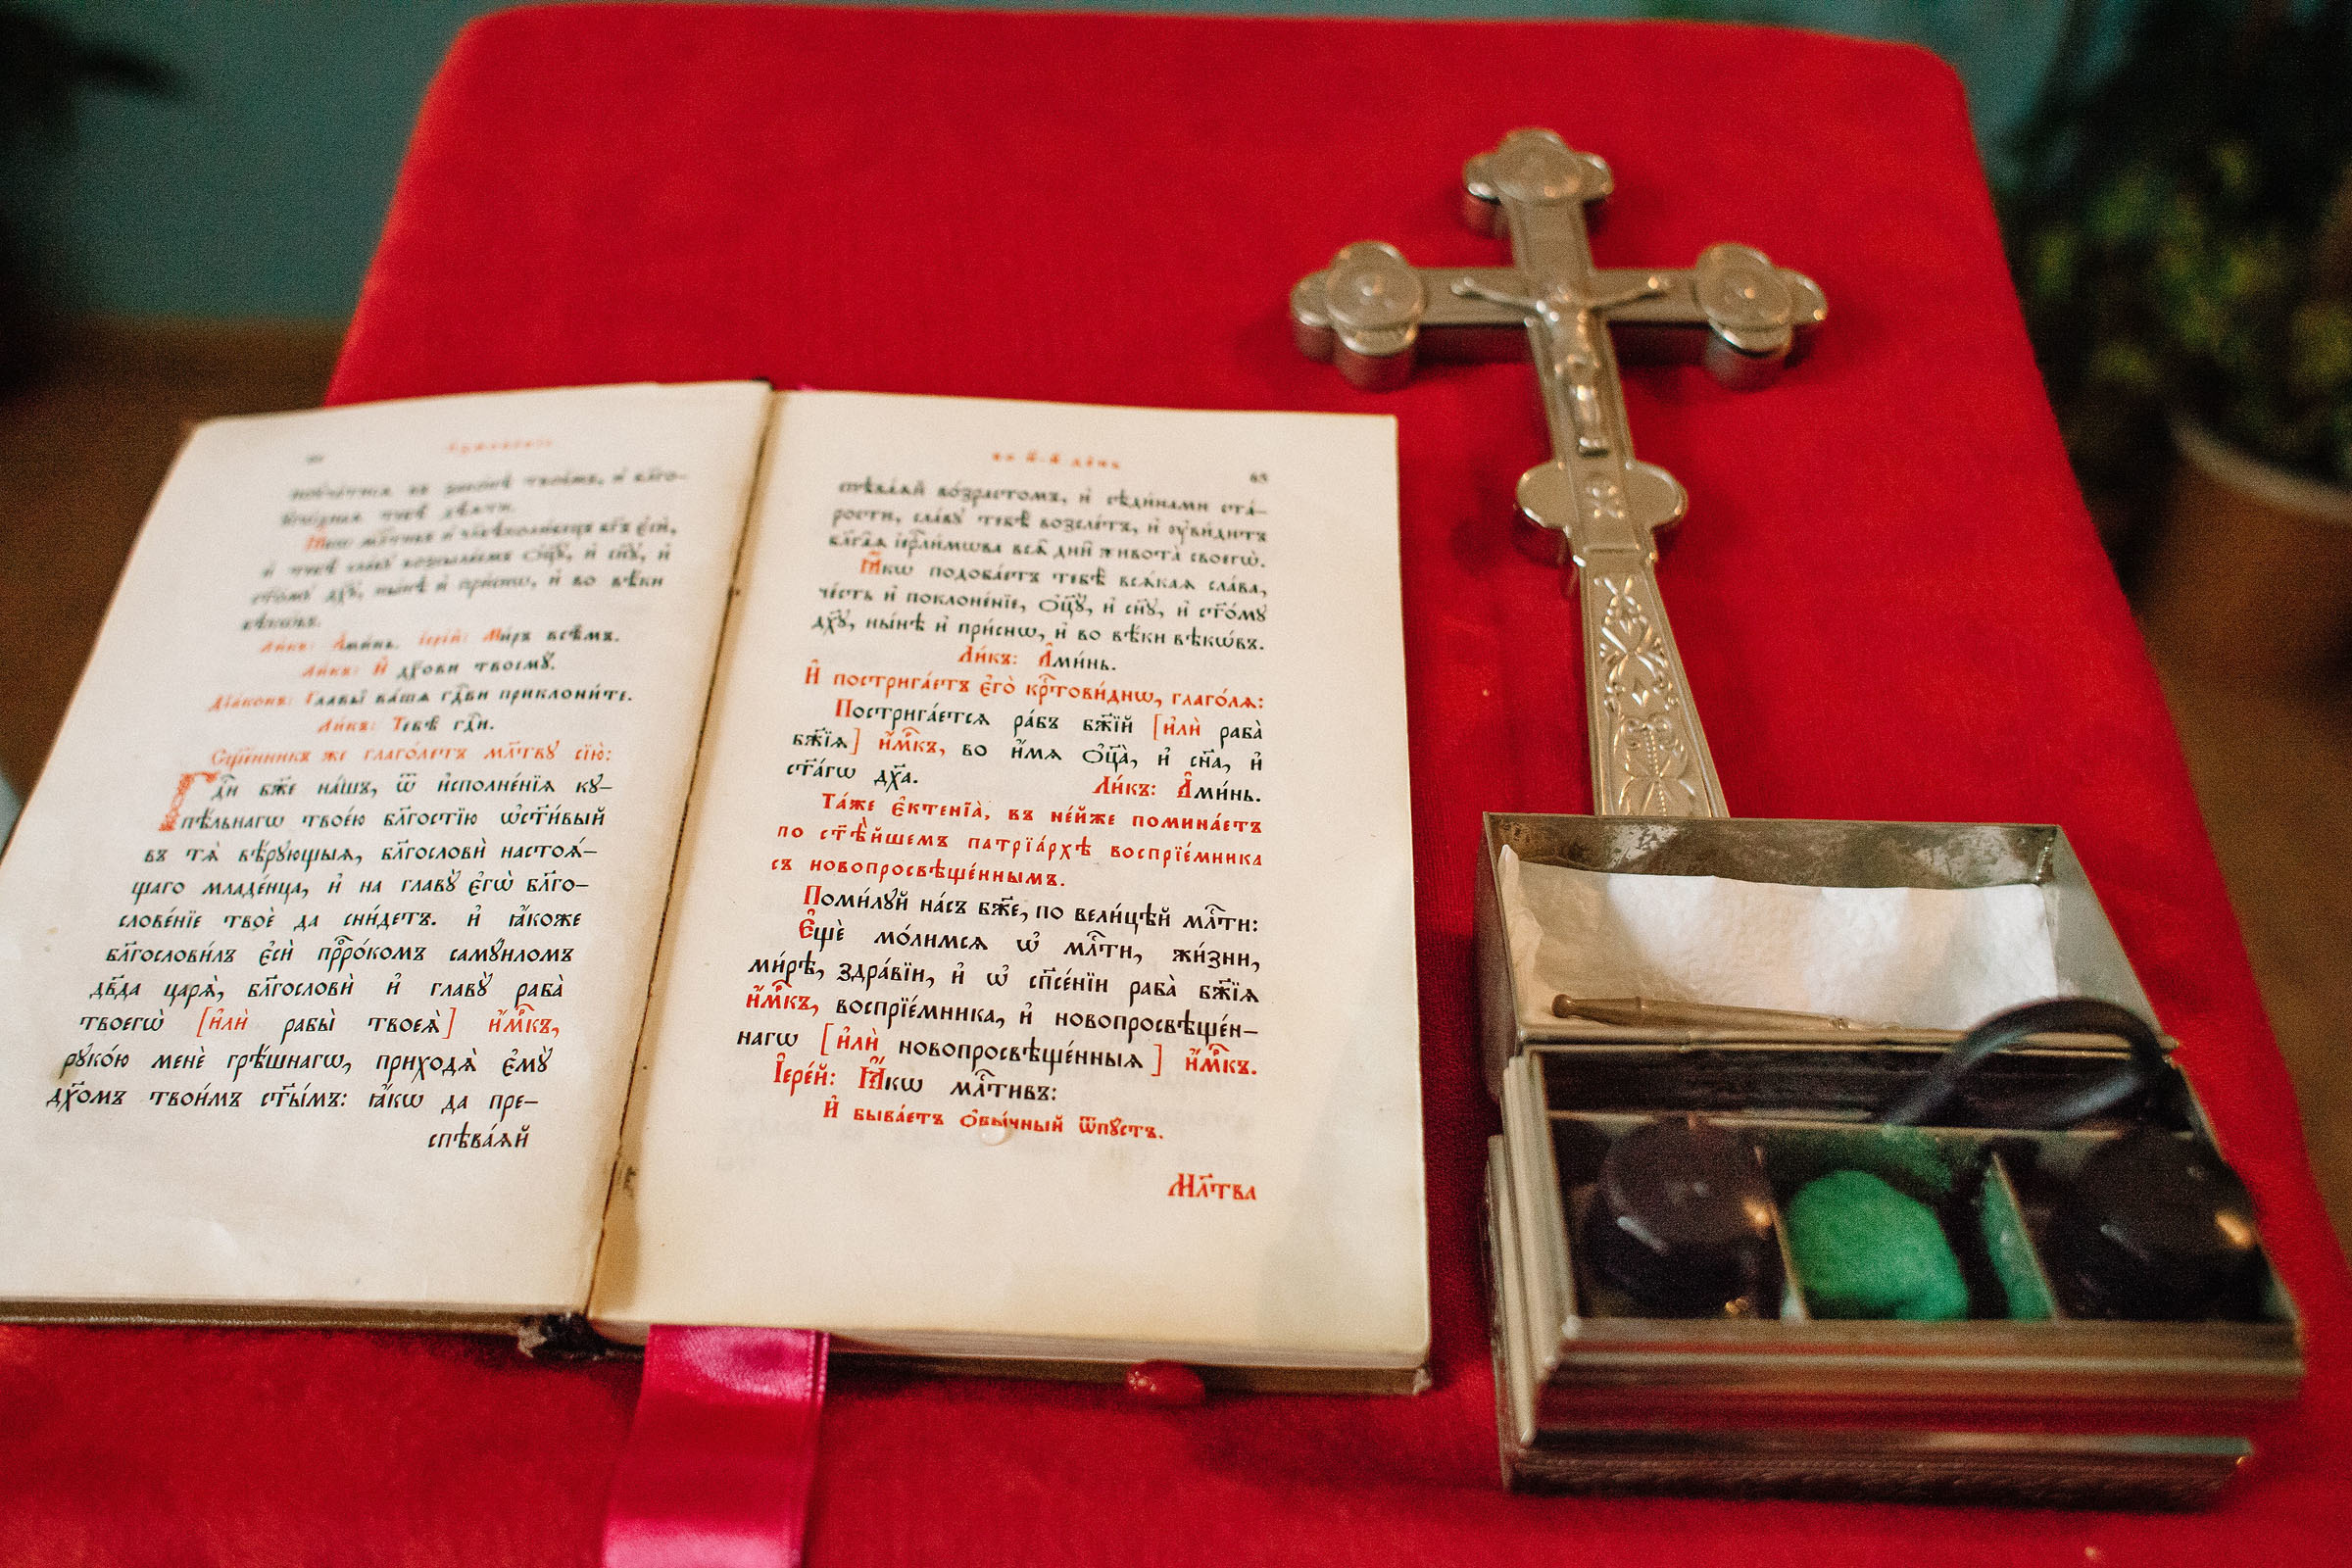 въ законѣ твое́мъ, и҆ бл҃го-
и҆ чл҃вѣколю́бецъ бг҃ъ є҆сѝ,
и҆ тебѣ̀ сла́вꙋ возсыла́емъ ѻ҆ц҃ꙋ̀, и҆ сн҃ꙋ, и҆
ст҃о́мꙋ дх҃ꙋ, ны́нѣ и҆ при́снѡ, и҆ во вѣ́ки
вѣкѡ́въ.
Ли́къ: А҆ми́нь. І҆ере́й: Ми́ръ всѣ̑мъ.
Ли́къ: И҆ дꙋ́хови твоемꙋ̀.
Дїа́конъ: Главы̑ ва́шѧ гдⷭ҇ви приклони́те.
Ли́къ: Тебѣ̀ гдⷭ҇и.
Сщ҃е́нникъ же глаго́летъ мл҃твꙋ сїю̀:
Гдⷭ҇и бж҃е на́шъ, ѿ и҆сполне́нїѧ кꙋ-
пѣ́льнагѡ твое́ю бл҃гостїю ѡ҆ст҃и́вый
въ тѧ̀ вѣ́рꙋющыѧ, бл҃гословѝ настоѧ́-
щаго младе́нца, и҆ на главꙋ̀ є҆гѡ̀ бл҃го-
слове́нїе твоѐ да сни́детъ. и҆ ꙗ҆́коже
бл҃гослови́лъ є҆сѝ прⷪ҇ро́комъ самꙋи́ломъ
дв҃да царѧ̀, бл҃гословѝ и҆ главꙋ̀ раба̀
твоегѡ̀ [и҆лѝ рабы̀ твоеѧ̀] и҆́мⷬ҇къ,
рꙋко́ю менѐ грѣ́шнагѡ, приходѧ̀ є҆мꙋ̀
дх҃омъ твои́мъ ст҃ы́мъ: ꙗ҆́кѡ да пре-
спѣва́ѧй
65
спѣва́ѧй во́зрастомъ, и҆ сѣди́нами ста́-
рости, сла́вꙋ тебѣ̀ возсле́тъ, и҆ ᲂу҆ви́дитъ
бл҃га̑ѧ і҆ерⷭ҇ли́мѡва всѧ̑ дни̑ живота̀ своегѡ̀.
Ꙗ҆́кѡ подоба́етъ тебѣ̀ всѧ́каѧ сла́ва,
че́сть и҆ поклоне́нїе, ѻ҆ц҃ꙋ̀, и҆ сн҃ꙋ, и҆ ст҃о́мꙋ
дх҃ꙋ, ны́нѣ и҆ при́снѡ, и҆ во вѣ́ки вѣкѡ́въ.
Ли́къ: А҆ми́нь.
И҆ постриға́етъ є҆го̀ крⷭ҇тови́днѡ, глаго́лѧ:
Постриза́етсѧ ра́бъ бж҃їй [и҆лѝ раба̀
бж҃їѧ] и҆́мⷬ҇къ, во и҆́мѧ ѻ҆ц҃а̀, и҆ сн҃а, и҆
ст҃а́гѡ дх҃а. Ли́къ: А҆ми́нь.
Та́же є҆ктенїа̀, въ не́йже помина́етъ
по ст҃ѣ́йшемъ патрїа́рхѣ воспрїе́мника
съ новопросвѣще́ннымъ.
Поми́лꙋй на́съ бж҃е, по вели́цѣй млⷭ҇ти:
Є҆щѐ мо́лимсѧ ѡ҆ млⷭ҇ти, жи́зни,
ми́рѣ, здра́вїи, и҆ ѡ҆ сп҃се́нїи раба̀ бж҃їѧ
и҆́мⷬ҇къ, воспрїе́мника, и҆ новопросвѣще́н-
нагѡ [и҆лѝ новопросвѣще́нныѧ] и҆́мⷬ҇къ.
І҆ере́й: Ꙗ҆́кѡ млⷭ҇тивъ:
И҆ быва́етъ ѻ҆бы́чный ѿпꙋ́стъ.
Мл҃тва